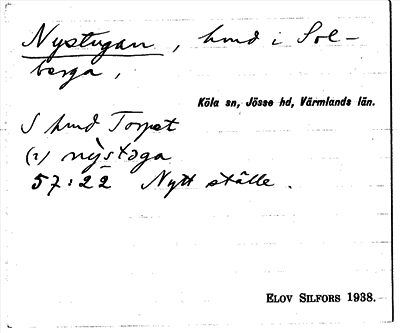 Nystugan, hmd i Sol-
berga,
Köla sn, Jösse hd, Värmlands län.
S hmd Torpet
(2) nỳstɔga
57:22 Nytt ställe.
ELOV SILFORS 1938.